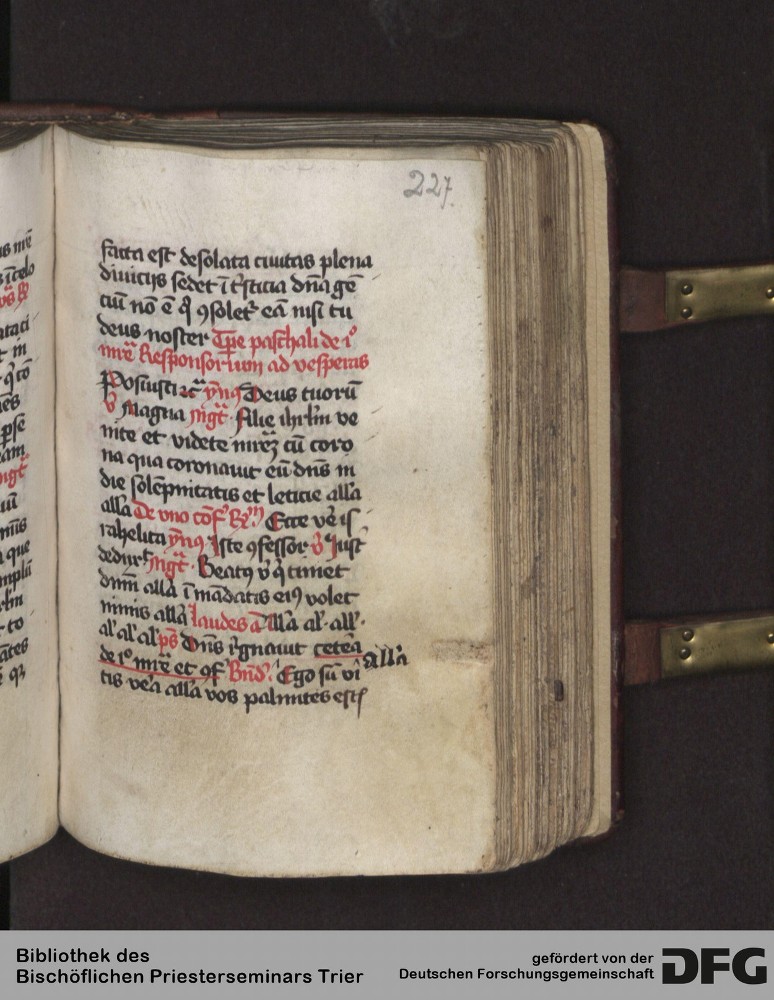 227
facta est desolata ciuitas plena
diuicijs sedet ī t̄sticia dn̄a gē
ciū nō ē q̄ ꝯsoletr̄ eā nisi tu
deus noster Tp̄e paschali de i̊
mr̄e Responsorium ad vesperas
Posuisti ꝛc̄ ymꝰ Deus tuorū
v̄ Magna mgt̄ Filie ihrl̄m ve
nite et videte mr̄eꝫ cū coro
na qua coronauit eū dn̄s in
die solēpnitatis et leticie all'a
all'a De vno cōf' Rm̄ Ecce ve' is
rahelita ymꝰ Iste ꝯfessor v̄ Iust'
mgt̄ Beatꝰ v' q' timet
dnm̄ alla ī mādatis eiꝰ volet
nimis alla laudes ā Alla al' all'
al' al' al' ps̄ Dn̄s r̄gnauit cetēa
alla
de i̊ mr̄e et ꝯf' Bnd' Ego sū vi
tis ve'a all'a vos palmites est
Bibliothek des
Bischöflichen Priesterseminars Trier
gefördert von der
Deutschen Forschungsgemeinschaft DFG